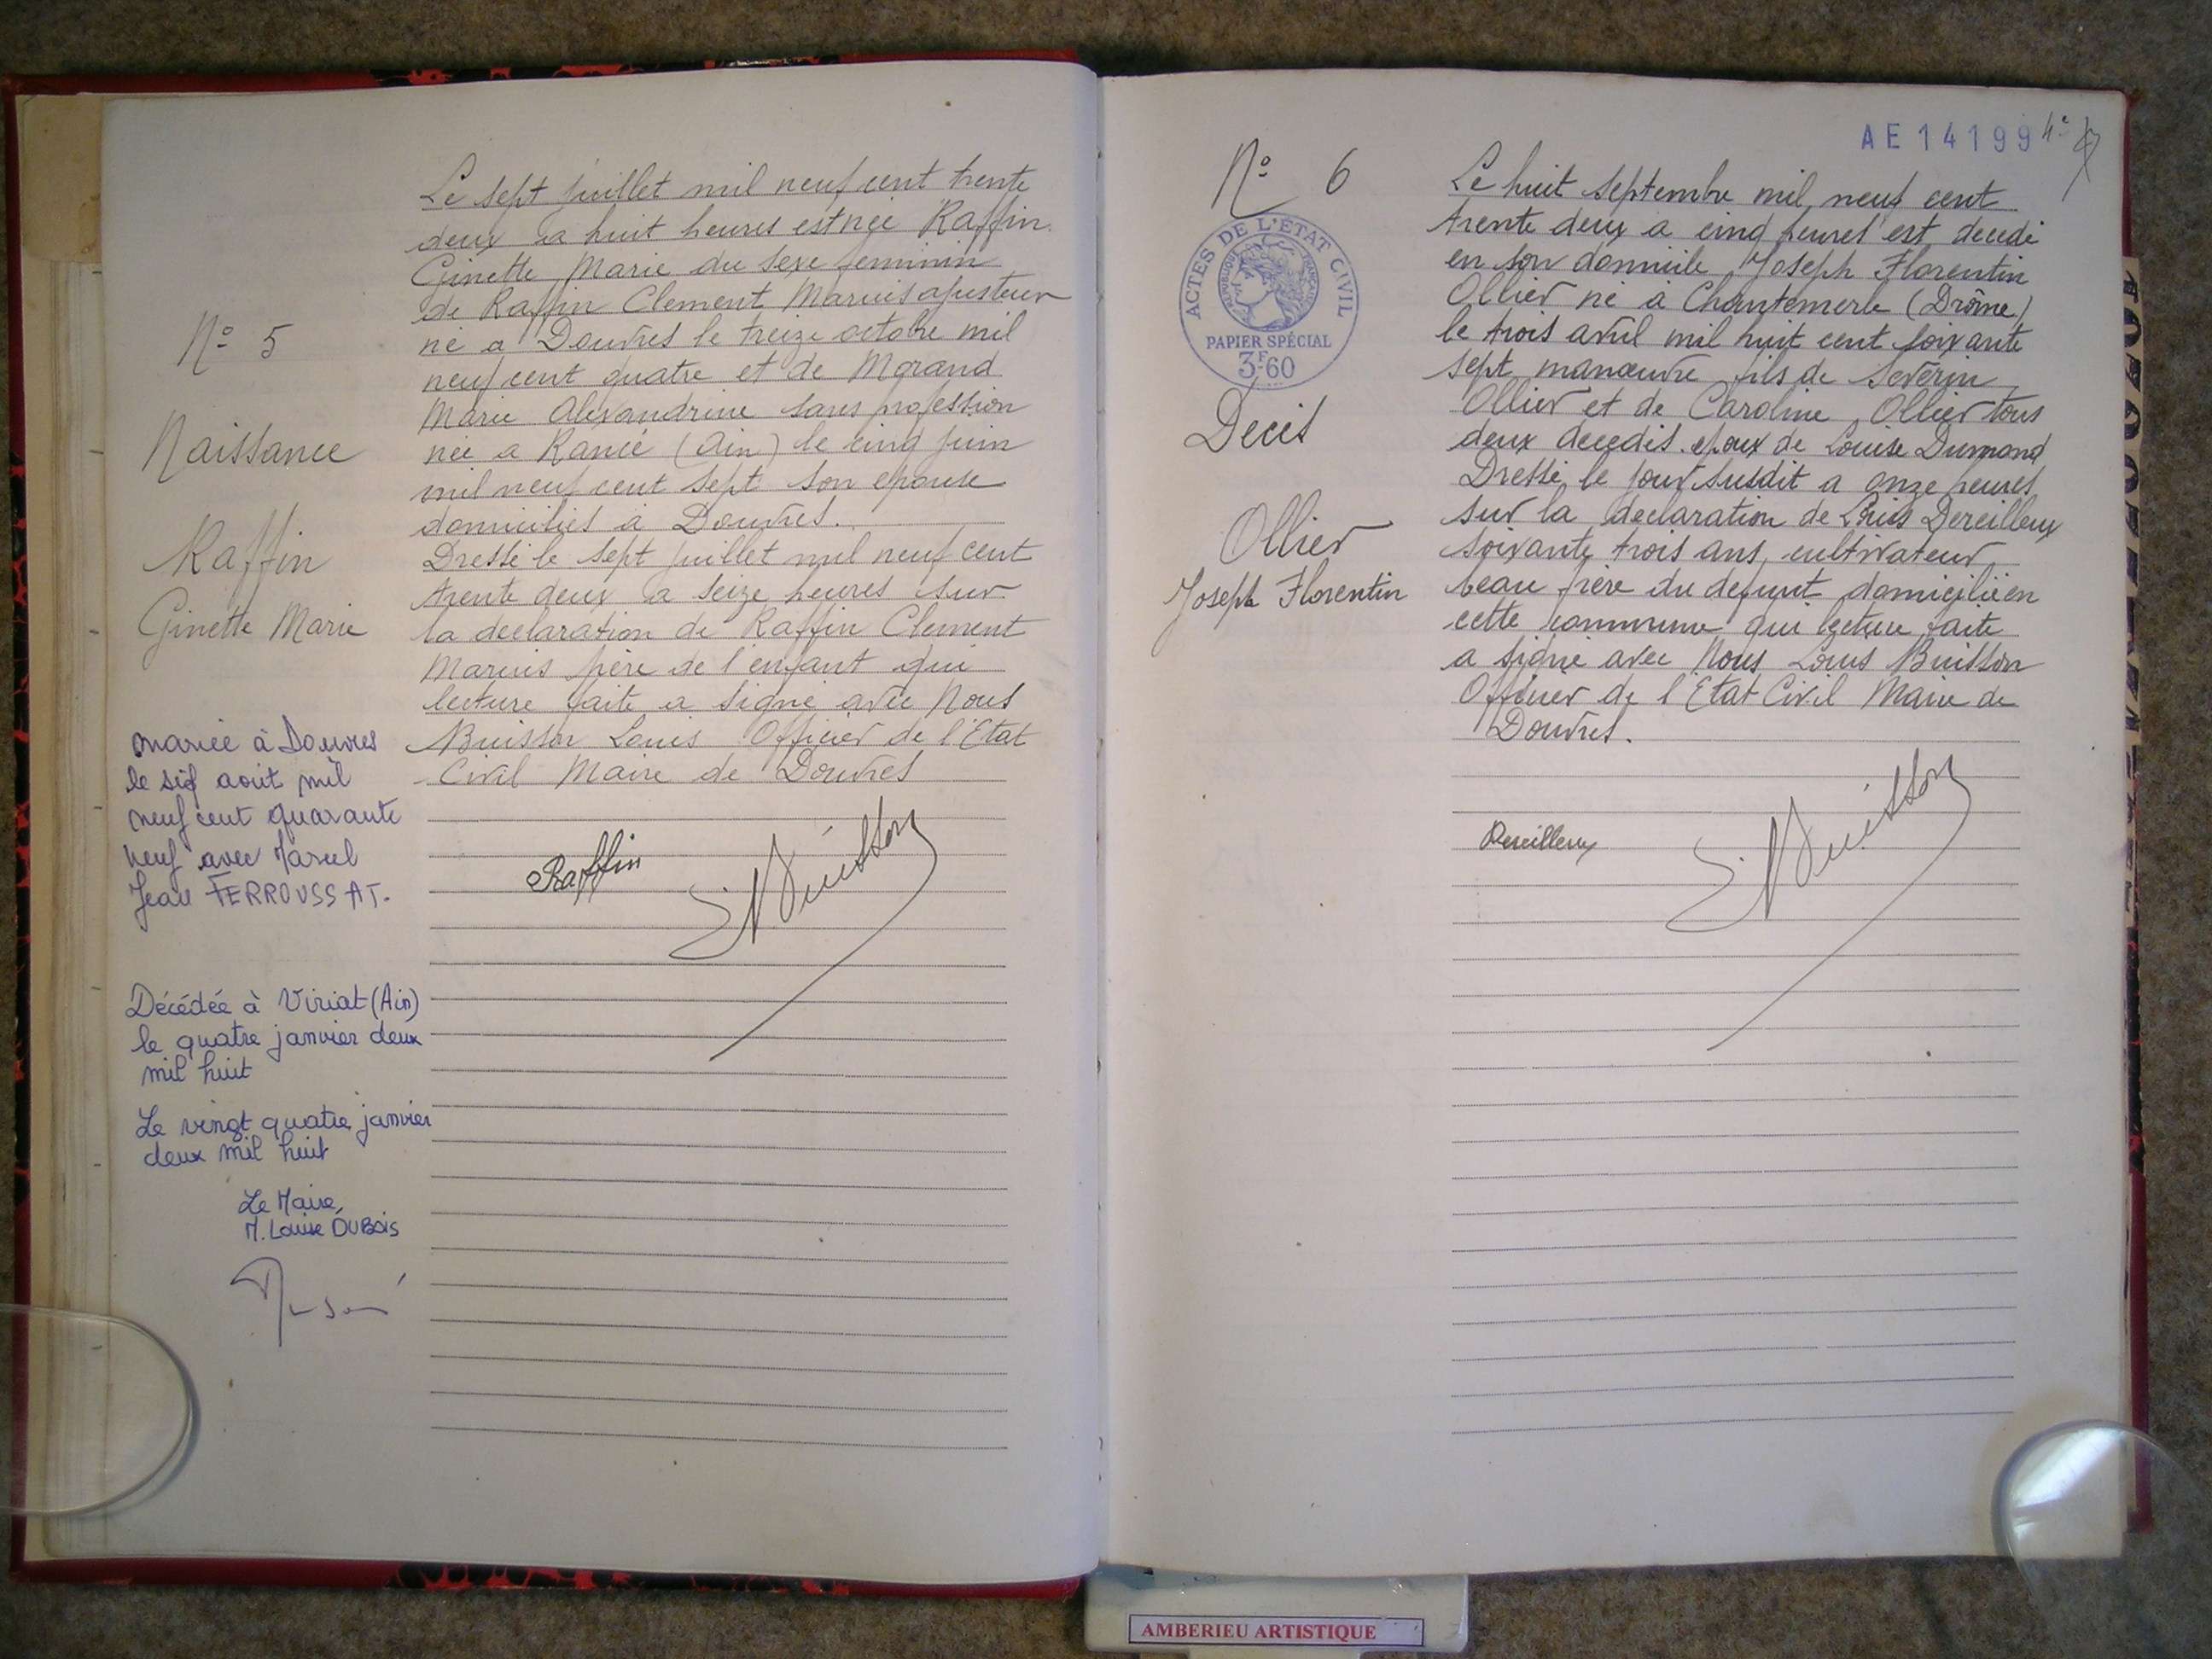 N° 5
Naissance
Raffin
Ginette Marie
Le sept juillet mil neuf cent trente
deux a huit heures est née Raffin
Ginette Marie du sexe feminin
de Raffin Clement Marius ajusteur
né a Douvres le treize octobre mil
neuf cent quatre et de Morand
Marie Alexandrine sans profession
née a Rancé (Ain) le cinq juin
mil neuf cent sept son epouse
domiciliés a Douvres.
Dressé le sept juillet mil neuf cent
trente deux a seize heures sur
la declaration de Raffin Clement
Marius père de l'enfant qui
lecture faite a signé avec Nous
Buisson Louis Officier de l'Etat
Civil Maire de Douvres
Raffin
Buisson
mariée à Douvres
le six août mil
neuf cent quarante
neuf avec Marcel
Jean FERROUSSAT.
Décédée à Viriat (Ain)
le quatre janvier deux
mil huit
Le vingt quatre janvier
deux mil huit
Le Maire,
M. Louise DUBOIS
AE 14199 4e
N° 6
ACTES DE L'ÉTAT CIVIL
RÉPUBLIQUE FRANÇAISE
PAPIER SPÉCIAL
3F60
Décès
Ollier
Joseph Florentin
Le huit septembre mil neuf cent
trente deux a cinq heures est decedé
en son domicile Joseph Florentin
Ollier né à Chantemerle (Drôme)
le trois avril mil huit cent soixante
sept manœuvre fils de Severin
Ollier et de Caroline Ollier tous
deux decedés epoux de Louise Dumond
Dressé le jour susdit a onze heures
sur la declaration de Louis Dereilleux
soixante trois ans, cultivateur
beau frère du defunt domicilié en
cette commune qui lecture faite
a signé avec Nous Louis Buisson
Officier de l'Etat Civil Maire de
Douvres.
Dereilleux
Buisson
AMBERIEU ARTISTIQUE